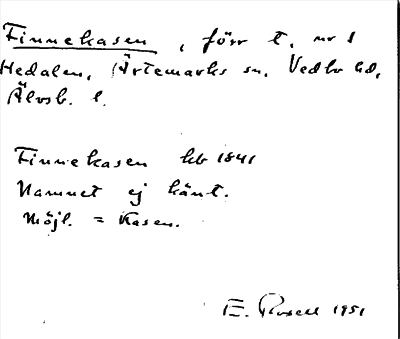 Finnekasen, förr t. nr 1
Hedalen, Ärtemarks sn, Vedbo hd,
Älvsb. l.
Finnekasen hb 1841
Namnet ej känt.
Möjl. = Kasen.
E. Rosell 1951